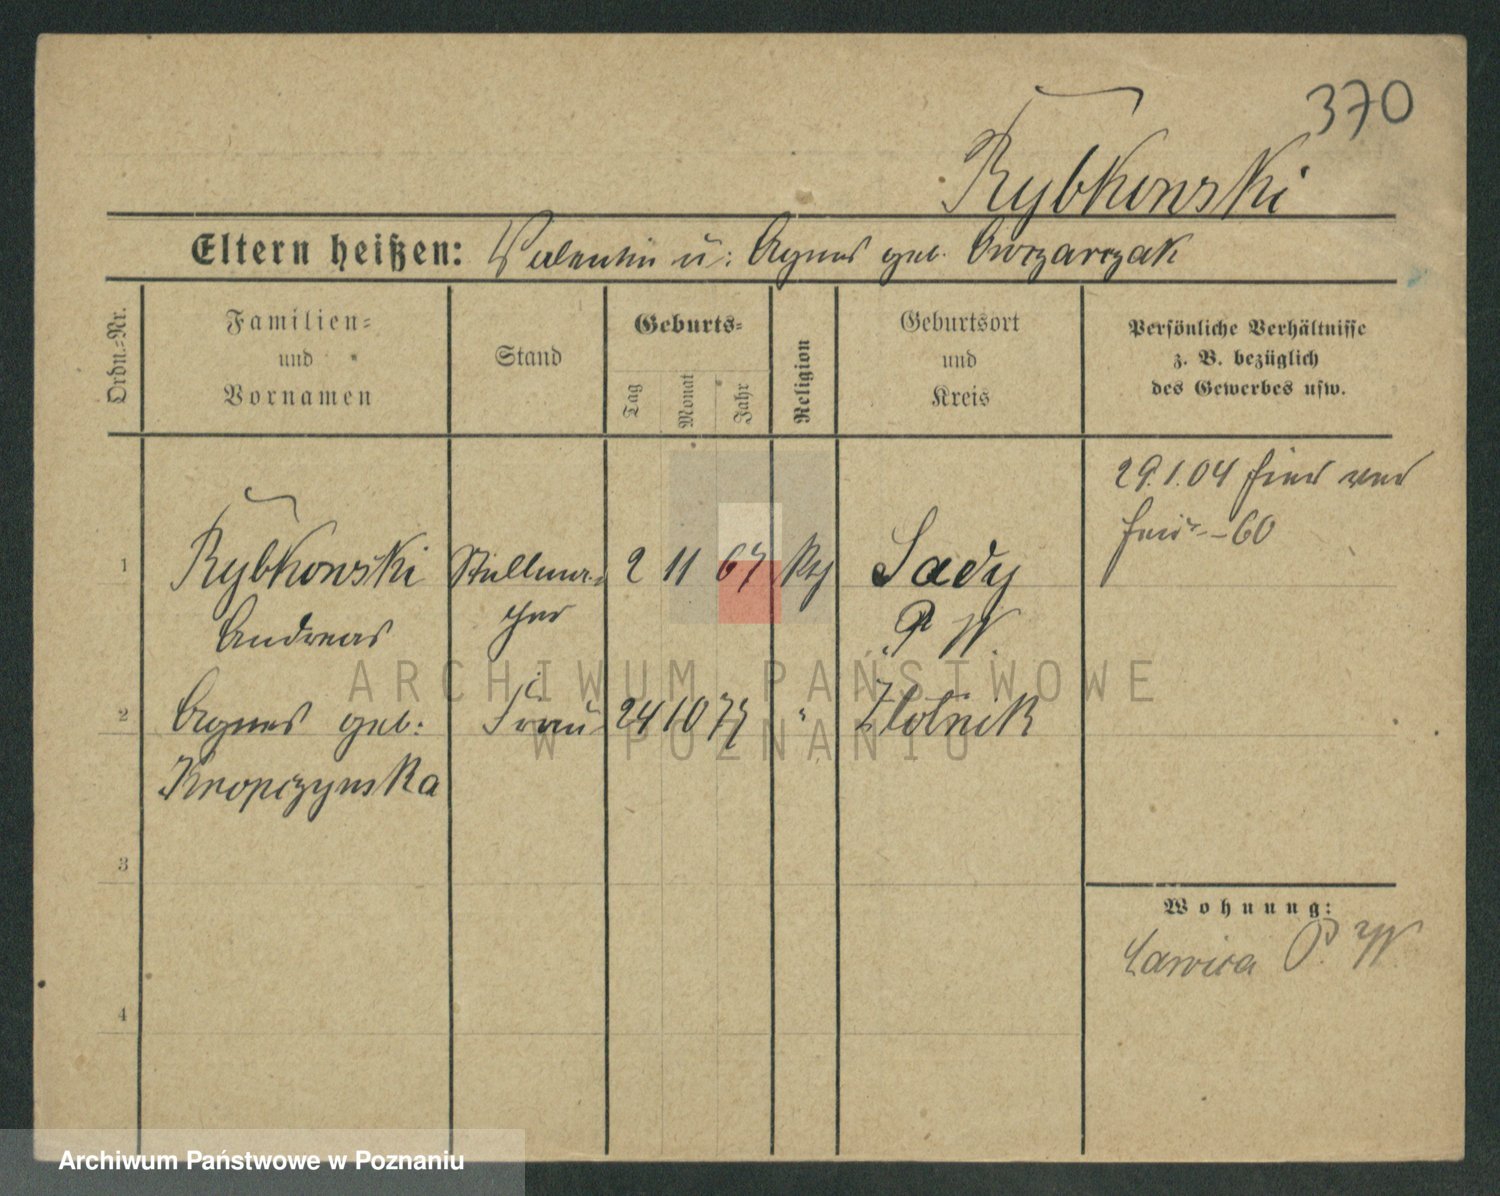 370
Rybkowski
Eltern heißen: Valentin u: Agnes geb. Owczarczak
Ordn.-Nr.
Familien-
und
Vornamen
Stand
Geburts-
Tag
Monat
Jahr
Religion
Geburtsort
und
Kreis
Persönliche Verhältnisse
z. B. bezüglich
des Gewerbes usw.
29.1.04
60
1 Rybkowski Stellma- 2 11 67 Sady
Andreas cher P W.
2 Agnes geb: Frau 24 10 77 " Zlotnik
Knopczynska
3
4
Wohnung:
Lawica P. W.
ARCHIWUM PAŃSTWOWE
W POZNANIU
Archiwum Państwowe w Poznaniu